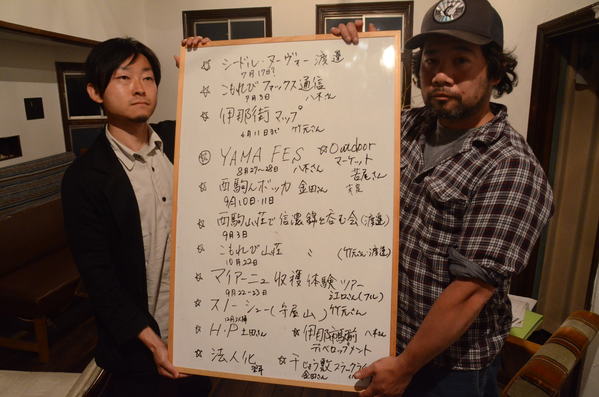 ☆ シードル・ヌーヴォー 渡邊
7月17日?
☆ こもれびフォックス通信
9月3日 八木さん
☆ 伊那街マップ
6月11日まで 竹元さん
YAMA FES ☆ Outdoor
マーケット
8月27〜28日 八木さん 若尾さん
☆ 西駒んボッカ 金田さん
9月10日・11日
☆ 西駒山荘で信濃錦を呑む会(渡邊)
9月3日
☆ こもれび山荘 〃 (竹元さん 渡邊)
10月22日
☆ マイアーニュ収穫体験ツアー
9月22〜23日
☆ スノーシュー( 山) 竹元さん
☆ H.P 土田さん ☆ 伊那 前 八木さん
ディベロップメント
☆ 法人化 ☆ 千じょう敷
金田さん